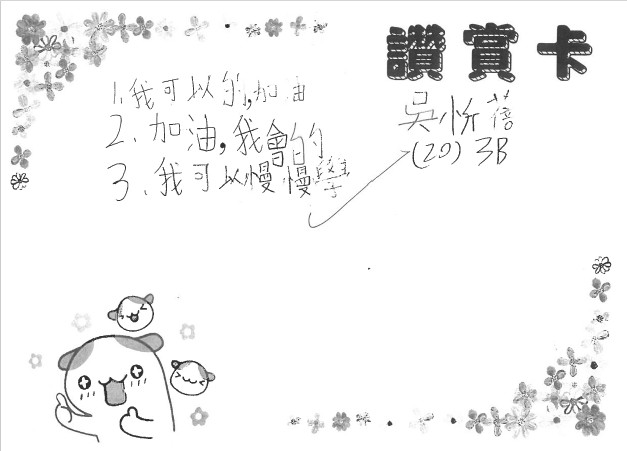 讚賞卡
1.我可以的,加油
2.加油,我會的
3.我可以慢慢學
吳悅蓓
(20) 3B